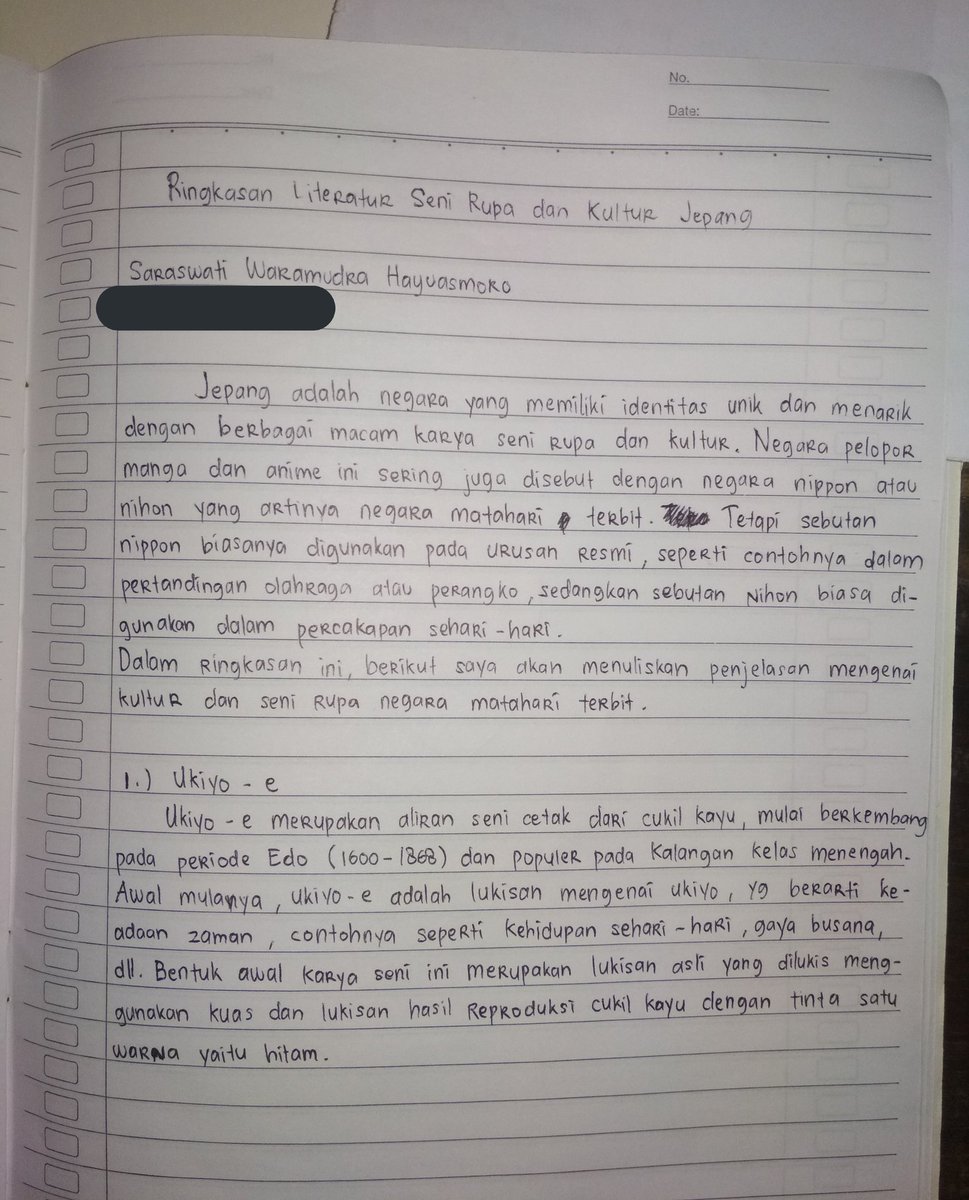 No.
Date:
Ringkasan Literatur Seni Rupa dan Kultur Jepang
Saraswati Waramudra Hayuasmoro
Jepang adalah negara yang memiliki identitas unik dan menarik
dengan berbagai macam karya seni rupa dan kultur. Negara pelopor
manga dan anime ini sering juga disebut dengan negara nippon atau
nihon yang artinya negara matahari terbit. Tetapi sebutan
nippon biasanya digunakan pada urusan resmi, seperti contohnya dalam
pertandingan olahraga atau perangko, sedangkan sebutan Nihon biasa di-
gunakan dalam percakapan sehari-hari.
Dalam ringkasan ini, berikut saya akan menuliskan penjelasan mengenai
kultur dan seni rupa negara matahari terbit.
1.) Ukiyo-e
Ukiyo-e merupakan aliran seni cetak dari cukil kayu, mulai berkembang
pada periode Edo (1600-1868) dan populer pada kalangan kelas menengah.
Awal mulanya, ukiyo-e adalah lukisan mengenai ukiyo, yg berarti ke-
adaan zaman, contohnya seperti kehidupan sehari-hari, gaya busana,
dll. Bentuk awal karya seni ini merupakan lukisan asli yang dilukis meng-
gunakan kuas dan lukisan hasil reproduksi cukil kayu dengan tinta satu
warna yaitu hitam.